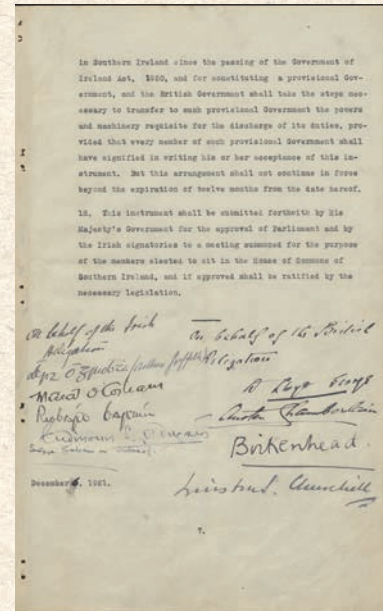 in Southern Ireland since the passing of the Government of
Ireland Act, 1920, and for constituting a provisional Gov-
ernment, and the British Government shall take the steps nec-
essary to transfer to such provisional Government the powers
and machinery requisite for the discharge of its duties, pro-
vided that every member of such provisional Government shall
have signified in writing his or her acceptance of this in-
strument. But this arrangement shall not continue in force
beyond the expiration of twelve months from the date hereof.
18. This instrument shall be submitted forthwith by His
Majesty's Government for the approval of Parliament and by
the Irish signatories to a meeting summoned for the purpose
of the members elected to sit in the House of Commons of
Southern Ireland, and if approved shall be ratified by the
necessary legislation.
On behalf of the Irish
Delegation
Art Ó Gríobhtha (Arthur Griffith)
Micheál Ó Coileain
Riobárd Bartún
On behalf of the British
Delegation
D Lloyd George
Austen Chamberlain
Birkenhead.
Winston S. Churchill
December 6, 1921.
7.